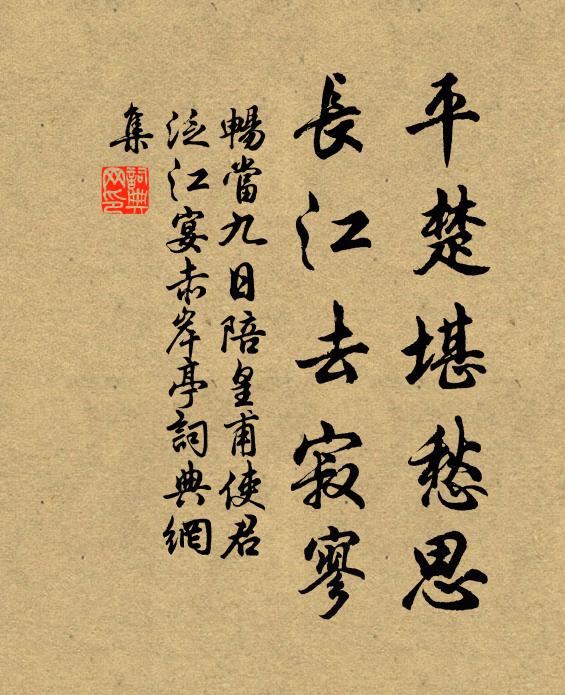 平楚堪愁思
長江去寂寥
暢當九日陪皇甫使君
泛江宴赤岸亭詞典網
集
詞典網印